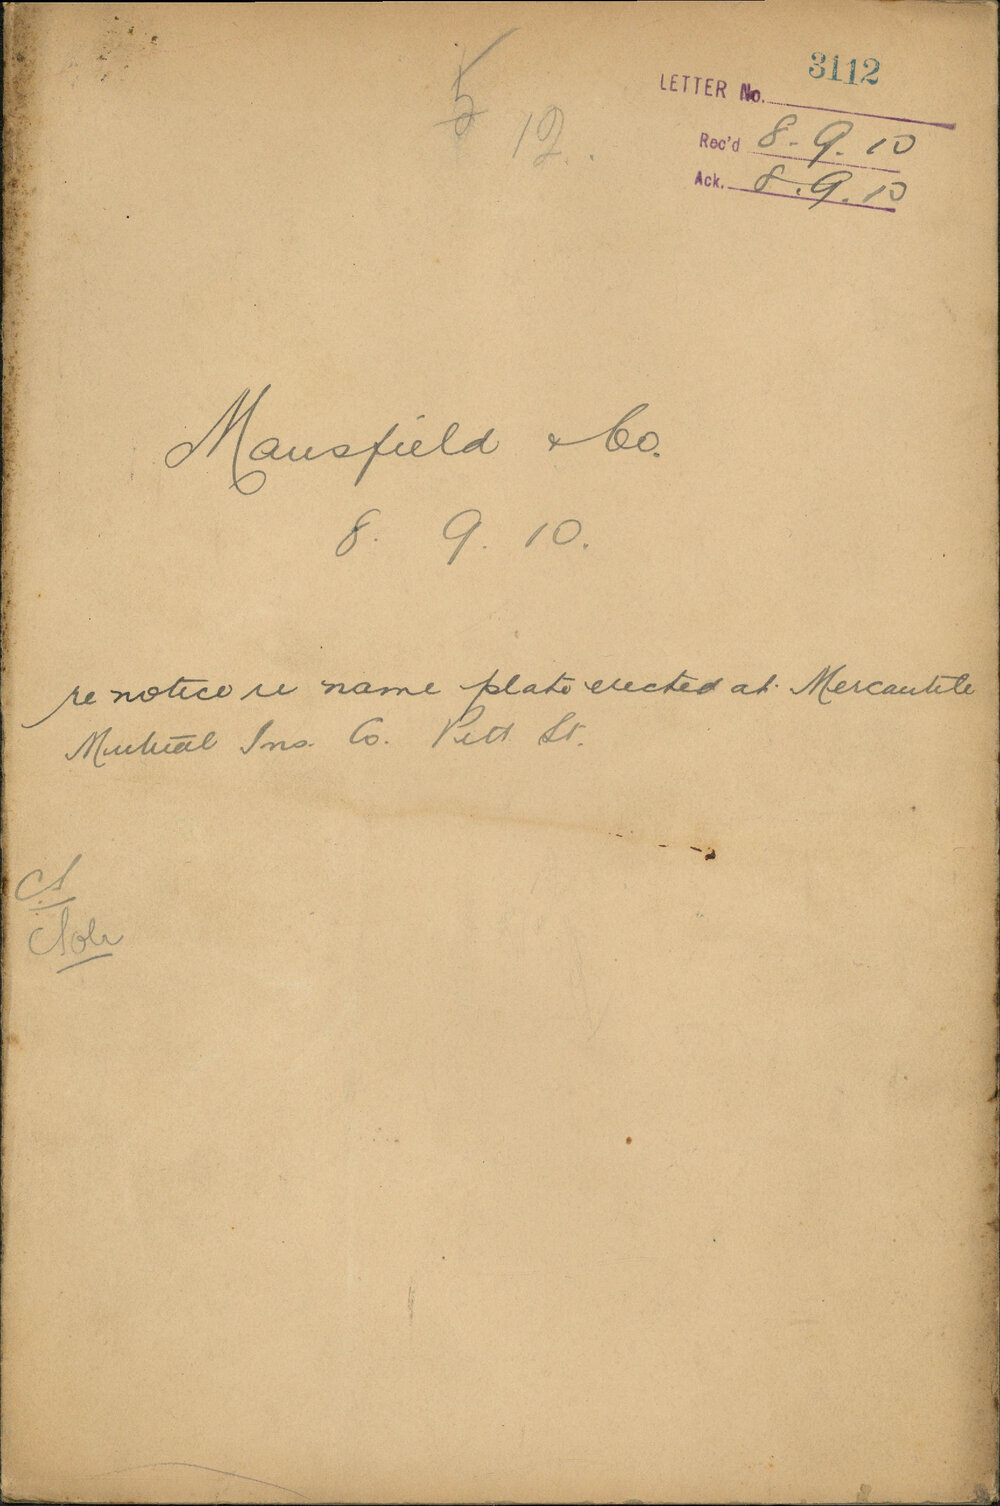 3112
LETTER No.
Rec'd 8-9.10
Ack. 8.9.10
5
12.
Mansfield & Co.
8. 9. 10.
re notice re name plate erected at Mercantile
Mutual Ins. Co. Pitt St.